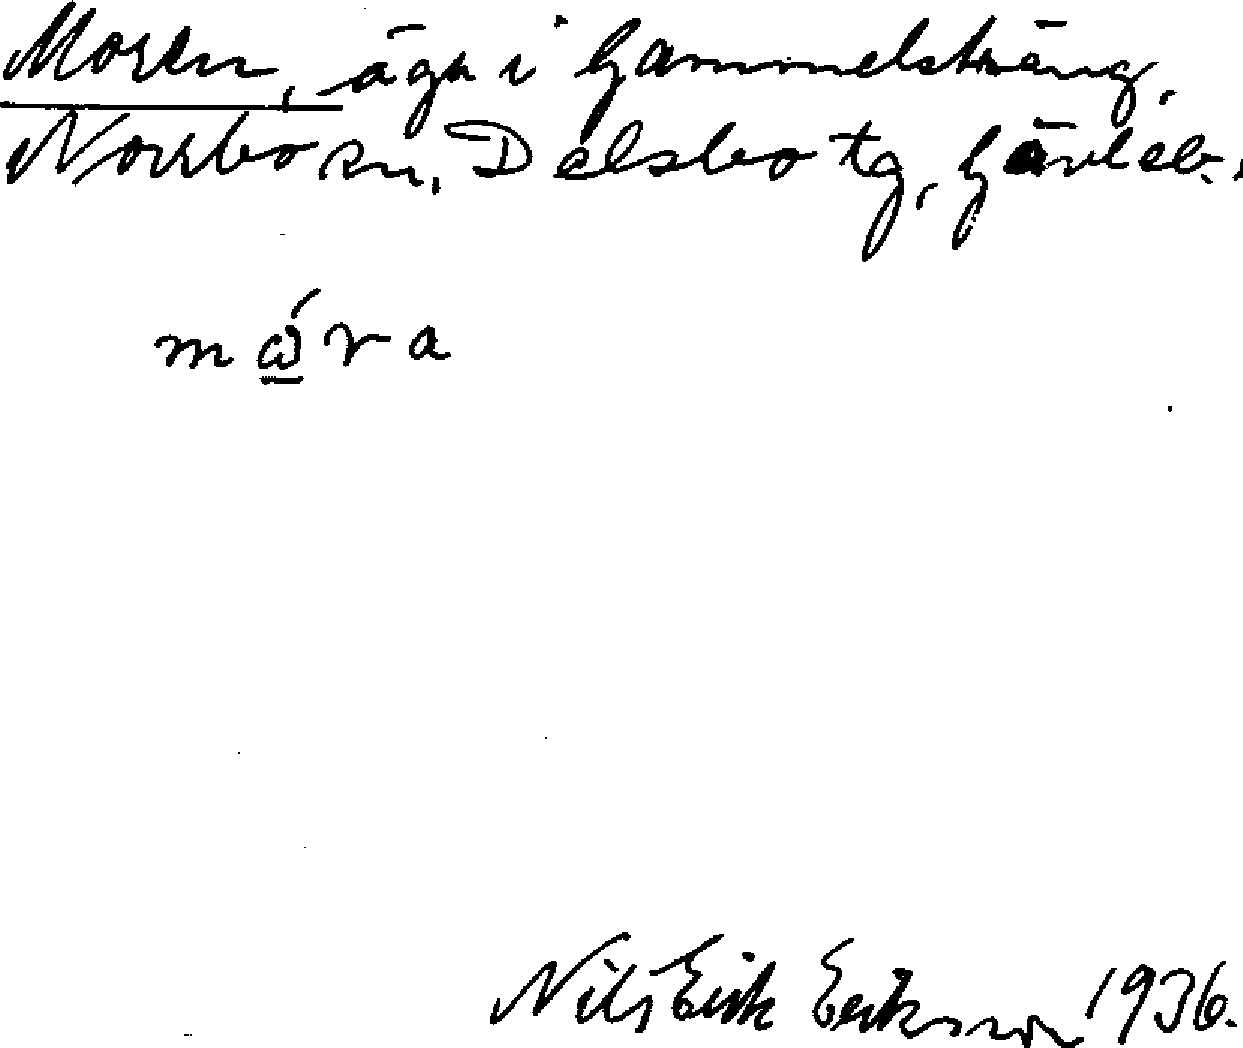 Moren, ägn i Gammelsträng,
Norrbo sn, Delsbo tg, Gävleb.,
mώ̲ra
Nils Erik Eriksson 1936.